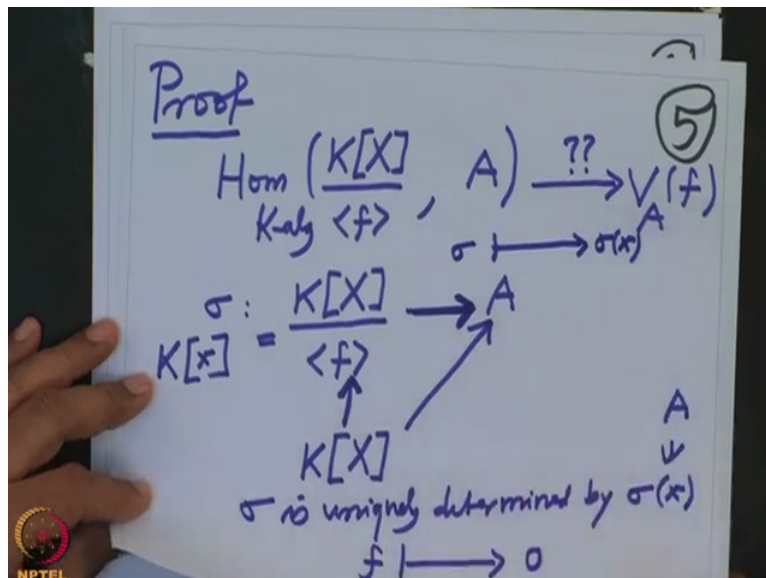 Proof
5
Hom K-alg ( K[X] / <f> , A ) —??→ V_A(f)
σ ↦ σ(x)
σ : K[x] = K[X] / <f> → A
K[X]
A
σ is uniquely determined by σ(x)
f ↦ 0
NPTEL